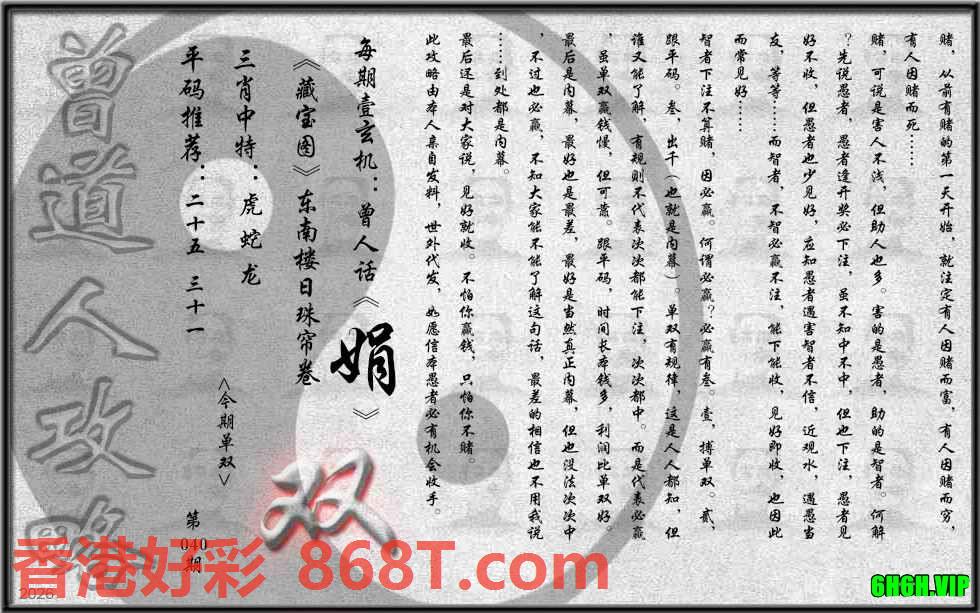 赌，从前有赌的第一天开始，就注定有人因赌而富，有人因赌而穷，
有人因赌而死……
赌，可说是害人不浅，但助人也多。害的是愚者，助的是智者。何解
？先说愚者，愚者逢开奖必下注，虽不知中不中，但也下注，愚者见
好不收，但愚者也少见好，应知愚者遇害智者不信，近观水，遇愚当
友，等等……而智者，不智必赢不注，能下能收，见好即收，也因此
而常见好……
智者下注不算赌，因必赢。何谓必赢？必赢有叁。壹，搏单双。贰，
跟平码。叁，出千（也就是内幕）。单双有规律，这是人人都知，但
谁又能了解，有规则不代表次次都能下注，次次都中。而是代表必赢
，虽单双赢钱慢，但可蓄。跟平码，时间长本钱多，利润比单双好。
最后是内幕，最好也是最差，最好是当然真正内幕，但也没法次次中
，不过也必赢，不知大家能不能了解这句话，最差的相信也不用我说
……到处都是内幕。
最后还是对大家说，见好就收。不怕你赢钱，只怕你不赌。
此攻略由本人亲自发料，世外代发，如愿信本愚者必有机会收手。
每期壹玄机：曾人话《娟》
《藏宝图》东南楼日珠帘卷
三肖中特：虎蛇龙
<今期单双>
双
平码推荐：二十五 三十一
第040期
曾道人攻略
香港好彩 868T.com
2026
6H6H.VIP